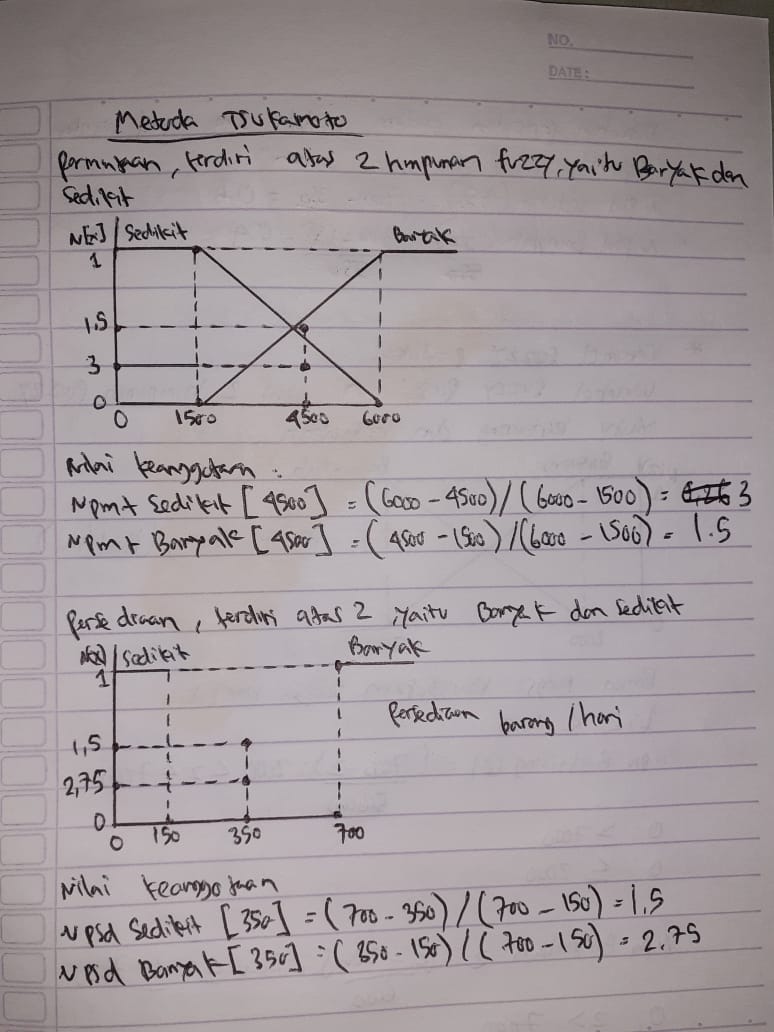 NO.
DATE:
Metoda Tsukamoto
Permintaan, terdiri atas 2 himpunan fuzzy, yaitu Banyak dan
Sedikit
N[x] Sedikit Banyak
1
1,5
3
0
0 1500 4500 6000
Nilai keanggotaan :
Npmt Sedikit [4500] = (6000 - 4500) / (6000 - 1500) = 3
Npmt Banyak [4500] = (4500 - 1500) / (6000 - 1500) = 1.5
Persediaan, terdiri atas 2 yaitu Banyak dan Sedikit
N(x) Sedikit Banyak
1
Persediaan barang / hari
1,5
2,75
0
0 150 350 700
Nilai keanggotaan
Npsd Sedikit [350] = (700 - 350) / (700 - 150) = 1,5
Npsd Banyak [350] = (350 - 150) / (700 - 150) = 2.75